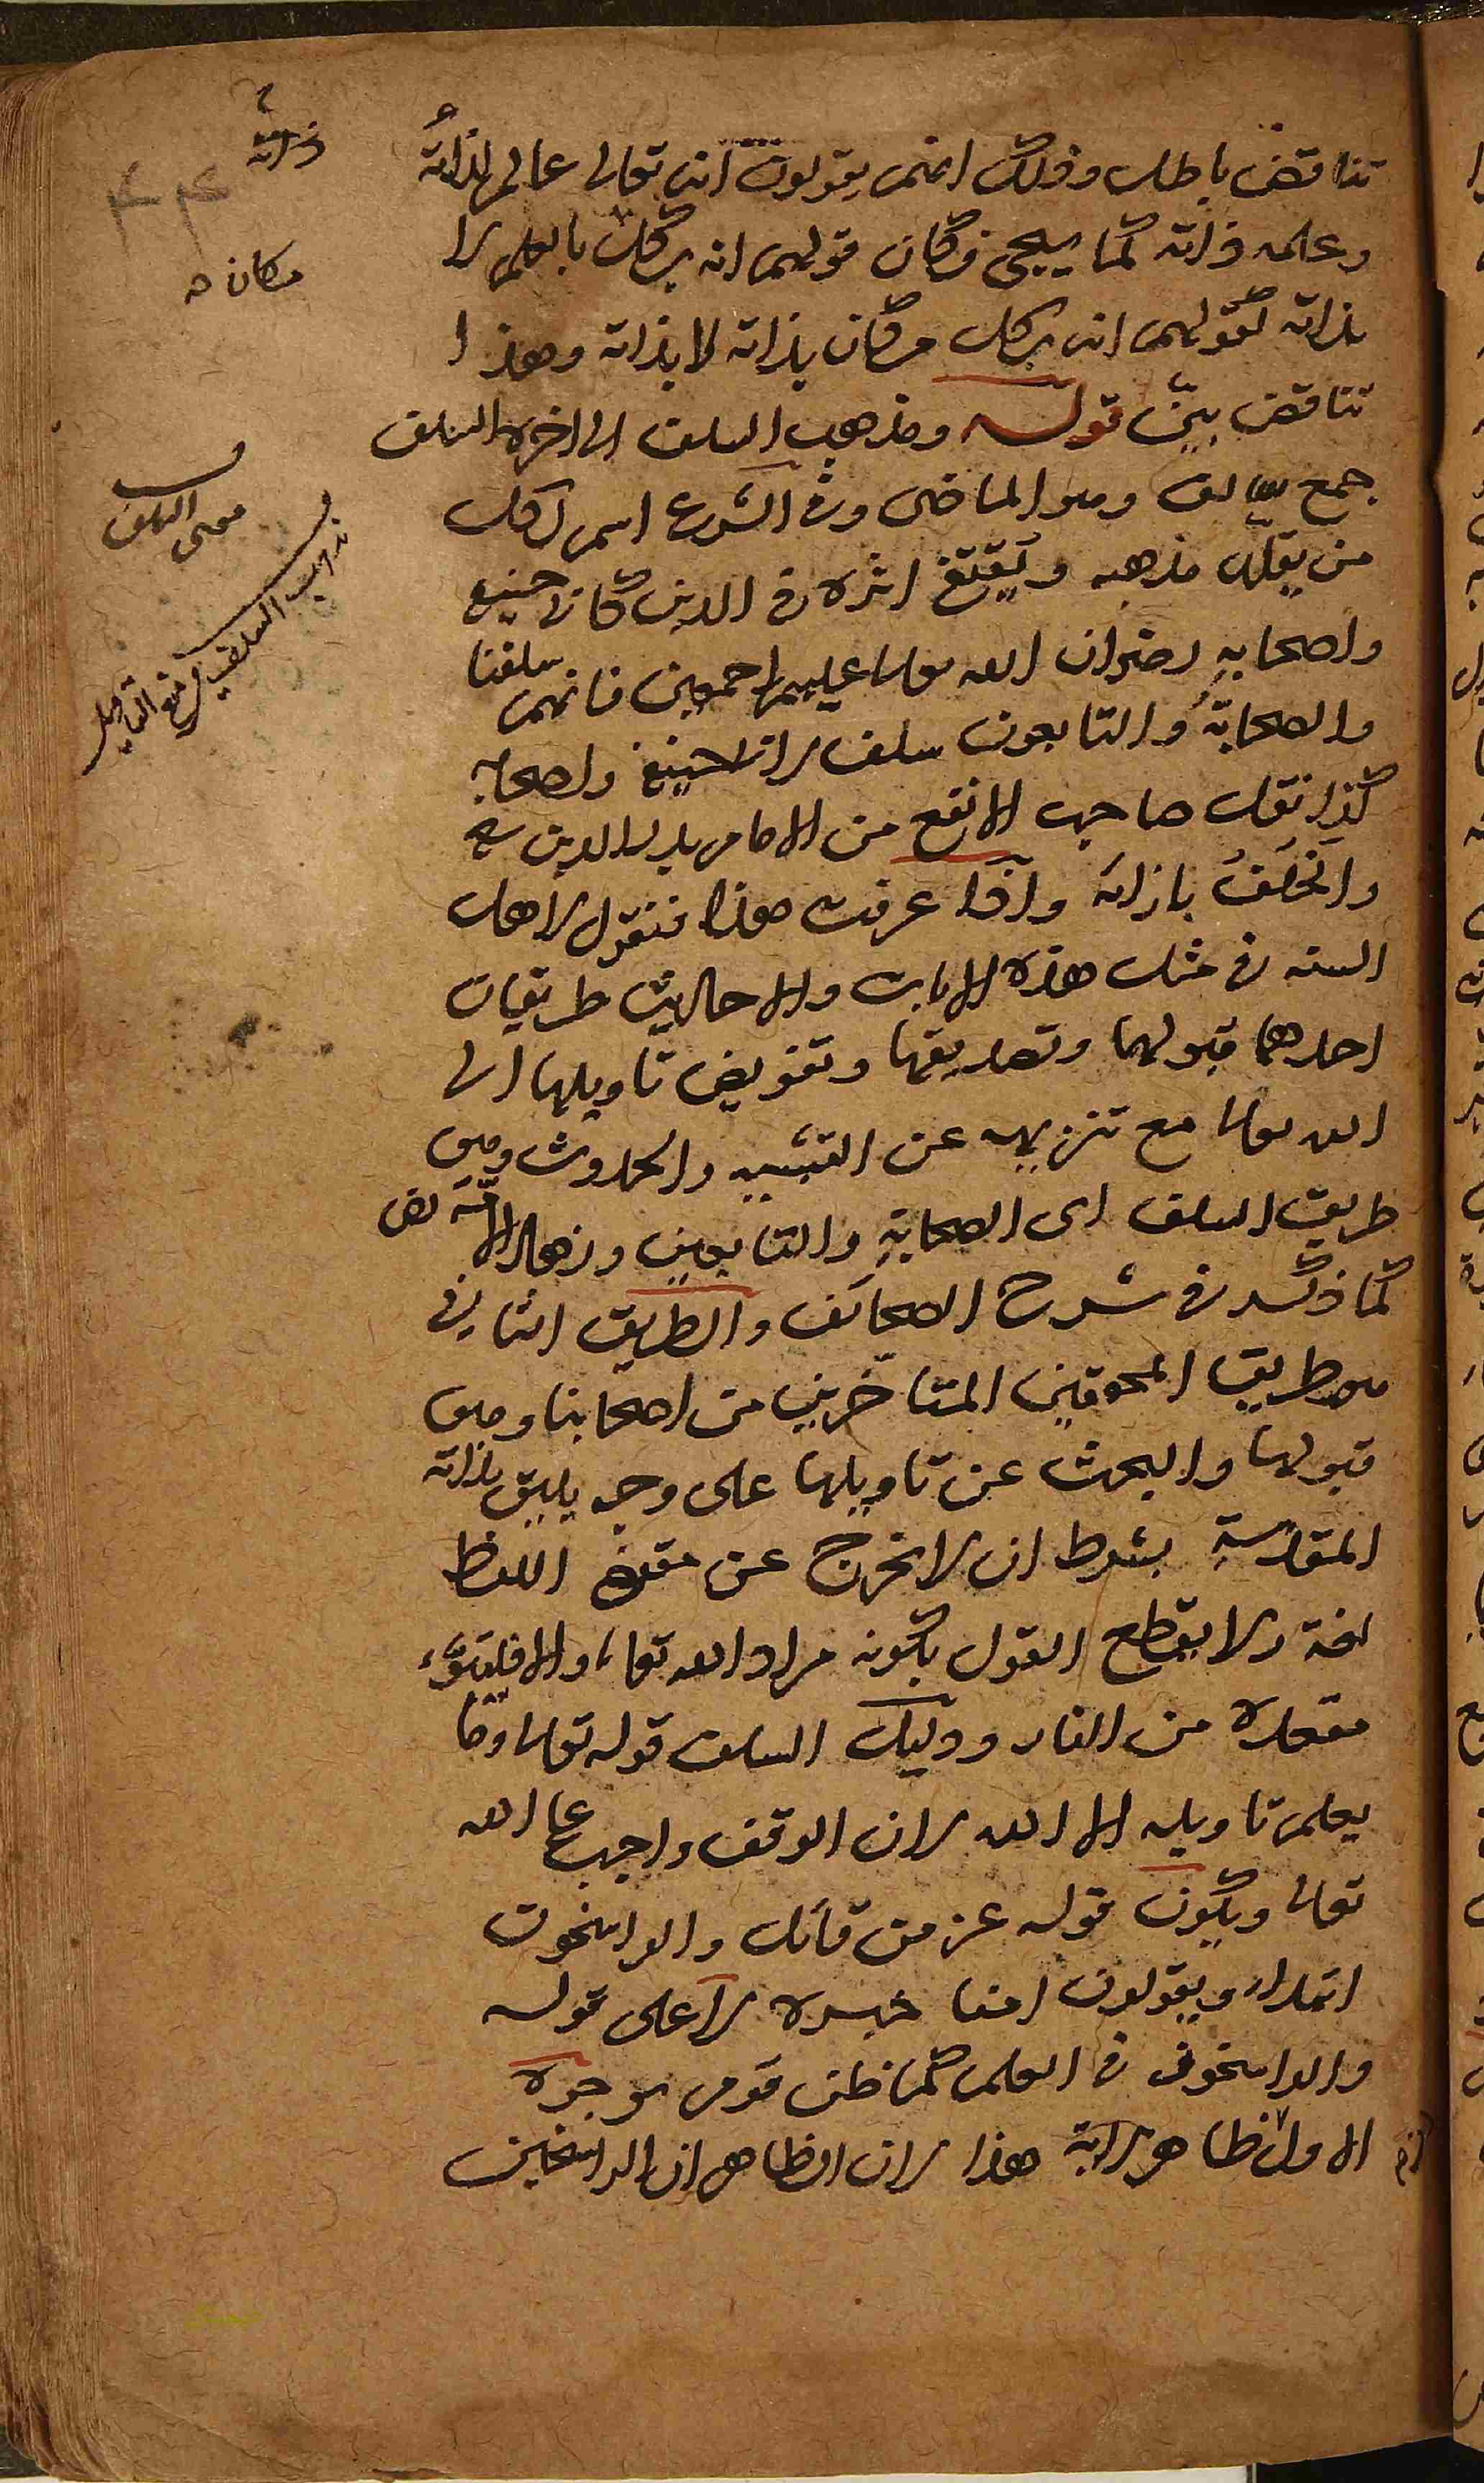 تناقض باطل وذلك انهم يقولون انه تعالى عالم لذاته
وعلمه ذاته كما يسيجئ فكان قولهم انه بكل بالعلم لا
بذاته كقولهم انه بكل مكان بذاته لا بذاته وهذا
تناقض بيّن قوله ومذهب السلف الى اخره السلف
جمع سالف وهو الماضى وفى الشرع اسم لكل
من يقلد مذهبه ويقتفى اثره فى الدين كابى حنيفة
واصحابه رضوان الله تعالى عليهم اجمعين فانهم سلفنا
والصحابة والتابعون سلف لابى حنيفة واصحابه
كذا نقل صاحب الانقع من الامام بدر الدين
والخلف بازائه واذا عرفت هذا فنقول لاهل
السنه فى مثل هذه الايات والاحاديث طريقان
احدهما قبولها وتصديقها وتفويض تاويلها الى
الله تعالى مع تنزيهه عن التشبيه والحدوث وهو
طريق السلف اى الصحابة والتابعين وزهاد الامة
كما ذكر فى شرح الصحائف والطريق الثانى
هو طريق المحققين المتاخرين من اصحابنا وهو
قبولها والبحث عن تاويلها على وجه يليق بذاته
المقدسة بشرط ان لا يخرج عن مقتضى اللفظ
لغة ولا يقطع القول بكونه مراد الله تعالى والا فليتبوّء
مقعده من النار ودليل السلف قوله تعالى وما
يعلم تاويله الا الله لان الوقف واجب على الله
تعالى ويكون قوله عز من قائل والراسخون
ابتداء ويقولون امنا خبره لا على قوله
والراسخون فى العلم كما ظن قوم بوجوه
الاول ظاهر الاية هذا لان الظاهر ان الراسخين
ذاته
مكان
۴۴
معنى السلف
مذهب السلف منع التاويل